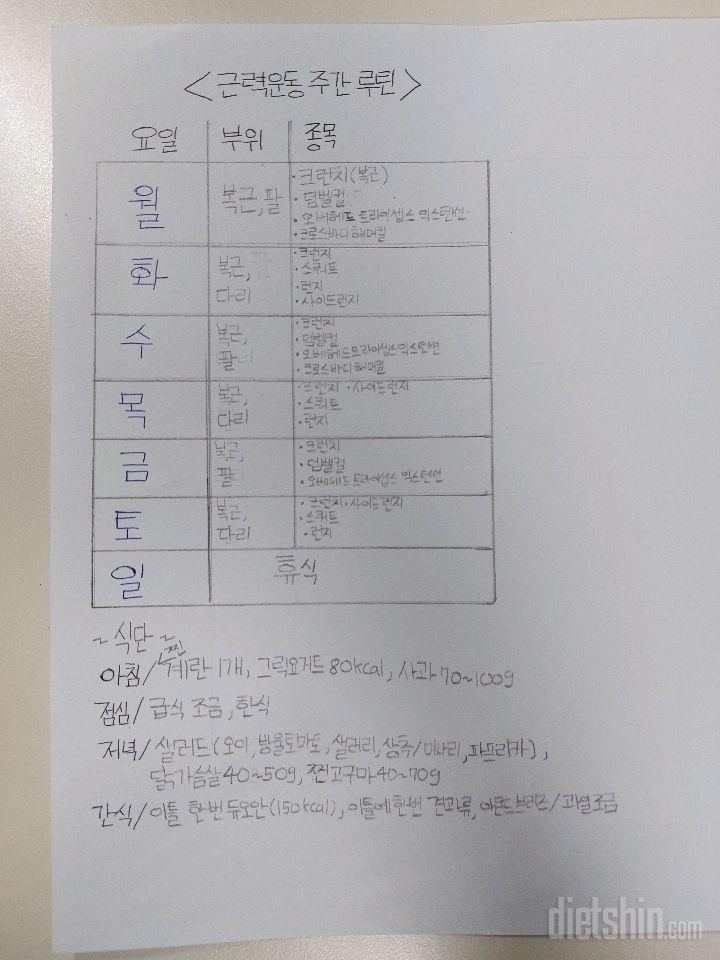 <근력운동 주간 루틴>
요일 부위 종목
월 복근, 팔
· 크런치(복근)
· 덤벨컬
· 오버헤드 트라이셉스 익스텐션
· 크로스바디 해머컬
화 복근, 다리
· 크런치
· 스쿼트
· 런지
· 사이드런지
수 복근, 팔
· 크런치
· 덤벨컬
· 오버헤드트라이셉스익스텐션
· 크로스바디해머컬
목 복근, 다리
· 크런치 · 사이드런지
· 스쿼트
· 런지
금 복근, 팔
· 크런치
· 덤벨컬
· 오버헤드 트라이셉스 익스텐션
토 복근, 다리
· 크런치 · 사이드런지
· 스쿼트
· 런지
일 휴식
~식단~
아침/ 찐 계란 1개, 그릭요거트 80kcal, 사과 70~100g
점심/ 급식 조금, 한식
저녁/ 샐러드(오이, 방울토마토, 샐러리, 상추/미나리, 파프리카),
닭가슴살 40~50g, 찐고구마 40~70g
간식/ 이틀 한번 듀오안(150kcal), 이틀에 한번 견과류, 아몬드브리즈/과일조금
dietshin.com